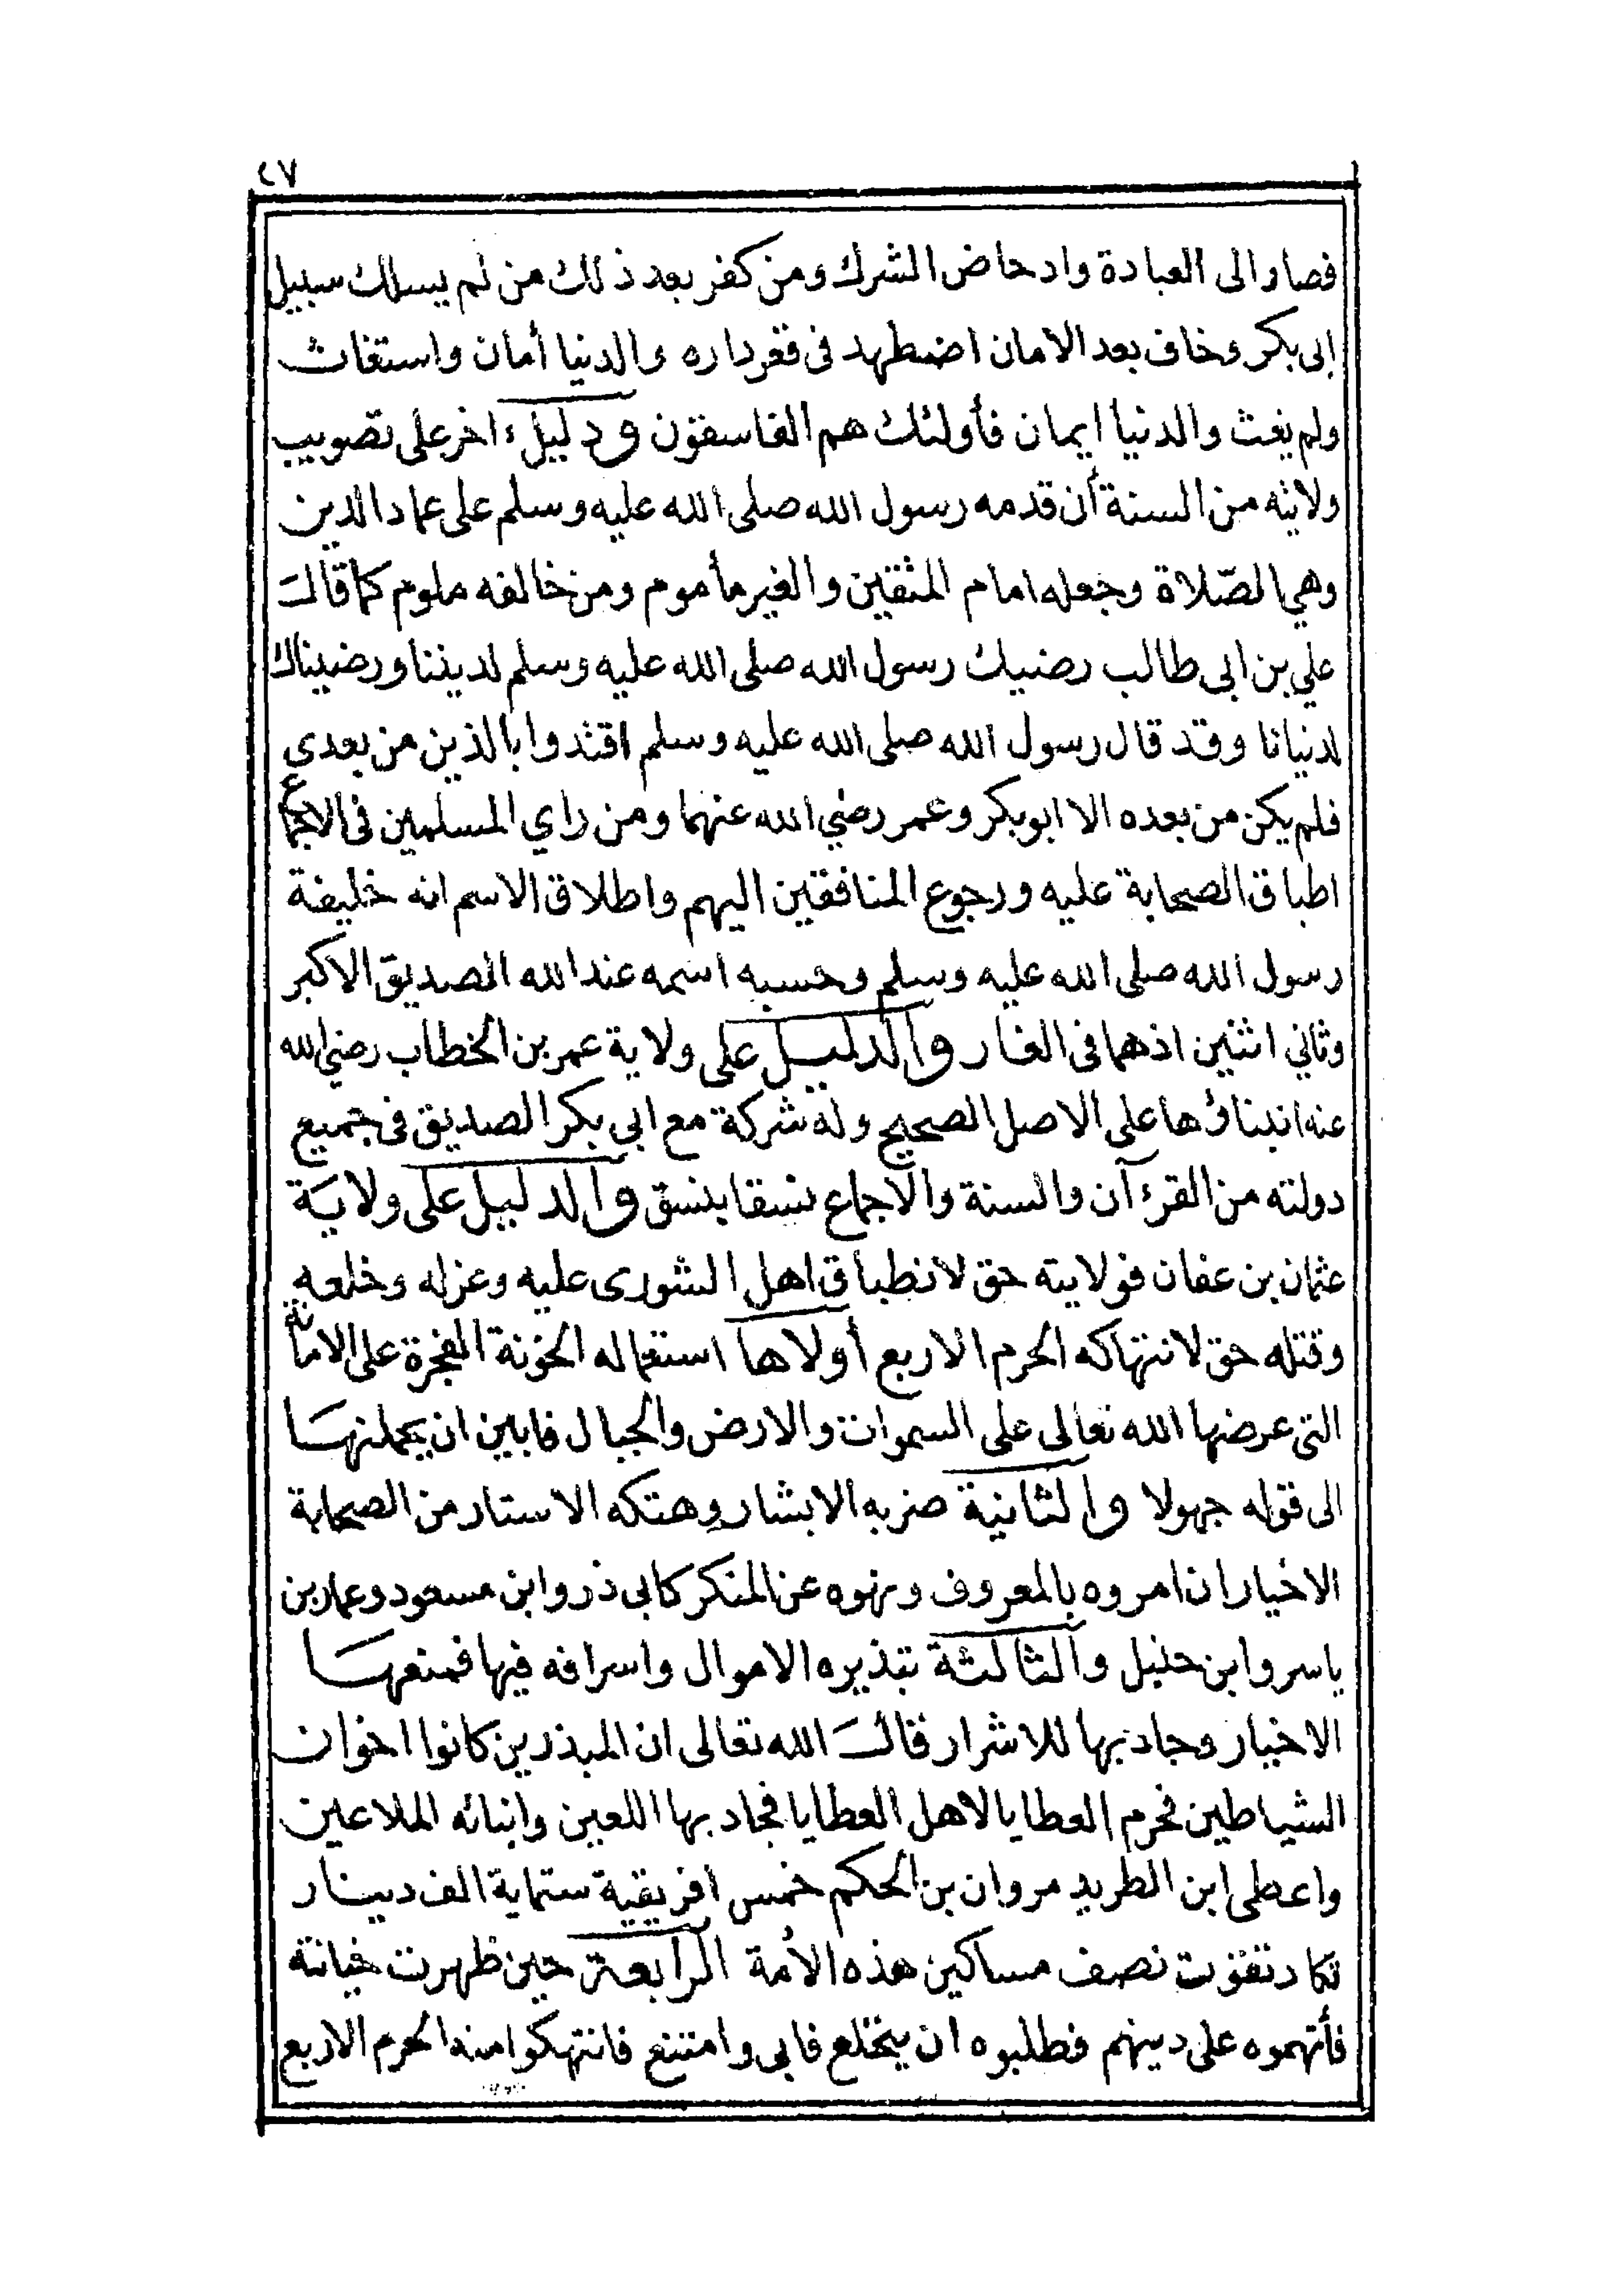 ٢٧
فصار الى العبادة وادحاض الشرك ومن كفر بعد ذلك من لم يسلك سبيل
ابى بكر وخاف بعد الامان اضطهد فى قعر داره والدنيا أمان واستغاث
ولم يغث والدنيا ايمان فأولئك هم الفاسقون ودليل ءاخر على تصويب
ولايته من السنة أن قدمه رسول الله صلى الله عليه وسلم على عماد الدين
وهي الصّلاة وجعله امام المتقين والغير مأموم ومن خالفه ملوم كما قال
علي بن ابى طالب رضيك رسول الله صلى الله عليه وسلم لديننا ورضيناك
لدنيانا وقد قال رسول الله صلى الله عليه وسلم اقتدوا بالذين من بعدي
فلم يكن من بعده الا ابو بكر وعمر رضي الله عنهما ومن راي المسلمين فى الاجماع
اطباق الصحابة عليه ورجوع المنافقين اليهم واطلاق الاسم انه خليفة
رسول الله صلى الله عليه وسلم وحسبه اسمه عند الله الصديق الاكبر
وثاني اثنين اذهما فى الغار والدليل على ولاية عمر بن الخطاب رضي الله
عنه ابتناؤها على الاصل الصحيح وله شركة مع ابى بكر الصديق فى جميع
دولته من القرءآن والسنة والاجماع نسقا بنسق والدليل على ولاية
عثمان بن عفان فولايته حق لانطباق اهل الشورى عليه وعزله وخلعه
وقتله حق لانتهاكه الحرم الاربع أولاها استعماله الخونة الفجرة على الامانة
التى عرضها الله تعالى على السموات والارض والجبال فابين ان يحملنها
الى قوله جهولا والثانية ضربه الابشار وهتكه الاستار من الصحابة
الاخيار ان امروه بالمعروف ونهوه عن المنكر كابى ذر وابن مسعود وعمار بن
ياسر وابن حنبل والثالثة تبذيره الاموال واسرافه فيها فمنعها
الاخيار وجاد بها للاشرار قال الله تعالى ان المبذرين كانوا اخوان
الشياطين فحرم العطايا لاهل العطايا فجاد بها اللعين وابنائه الملاعين
واعطى ابن الطريد مروان بن الحكم خمس افريقية ستماية الف دينار
تكاد تقوت نصف مساكين هذه الأمة الرابعة حين ظهرت خيانته
فأتهموه على دينهم فطلبوه ان ينخلع فابى وامتنع فانتهكوا منه الحرم الاربع